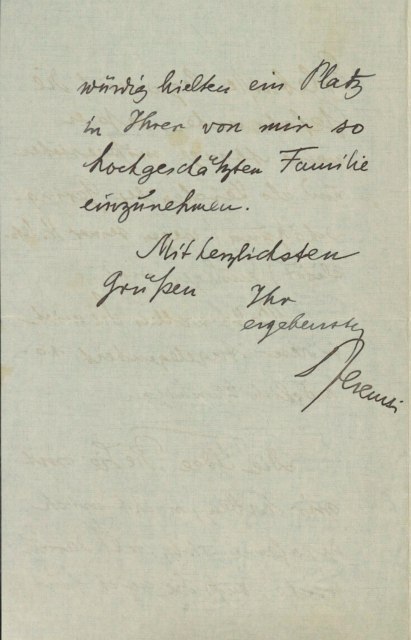 würdig hielten ein Platz
in Ihrer von mir so
hochgeschätzten Familie
einzunehmen.
Mit herzlichsten
Grüßen Ihr
ergebenster